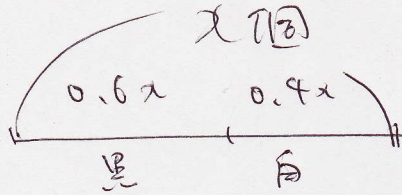 x個
0.6x 0.4x
黒 白